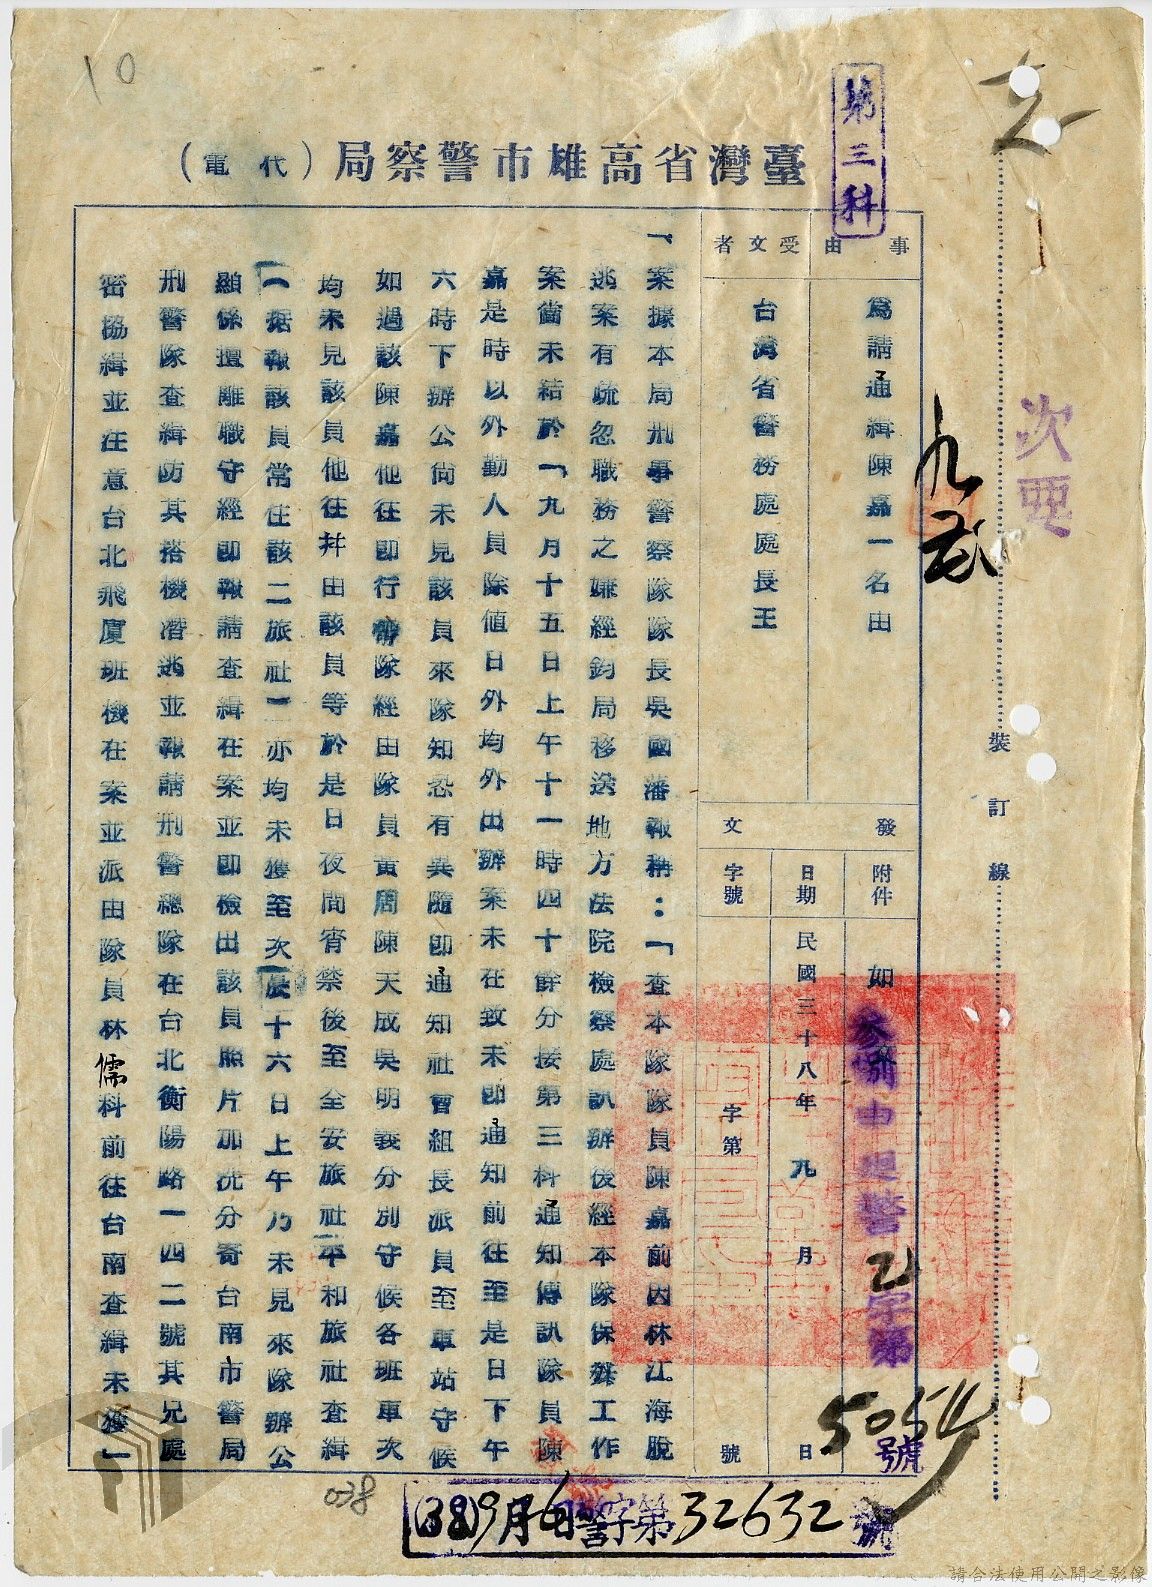 10
第三科
臺灣省高雄市警察局（代電）
事由
為請通緝陳嘉一名由
受文者
台灣省警務處處長王
發文
附件
如
日期
民國三十八年 九 月 日
字號
字第 號
5054
號
一、案據本局刑事警察隊隊長吳國藩報稱：「查本隊隊員陳嘉前因林江海脫
逃案有疏忽職務之嫌經鈞局移送地方法院檢察處訊辦後經本隊保釋工作
案尚未結於「九月十五日上午十一時四十餘分接第三科通知傳訊隊員陳
嘉是時以外勤人員除值日外均外出辦案未在致未即通知前往至是日下午
六時下辦公尚未見該員來隊知恐有異隨即通知社會組長派員至車站守候
如遇該陳嘉他往即行帶隊經由隊員黃周陳天成吳明義分別守候各班車次
均未見該員他往并由該員等於是日夜間宵禁後至全安旅社本和旅社查緝
（据報該員常住該二旅社）亦均未獲至次晨十六日上午乃未見來隊辦公
顯係擅離職守經即報請查緝在案並即檢出該員照片加洗分寄台南市警局
刑警隊查緝防其搭機潛逃並報請刑警總隊在台北衡陽路一四二號其兄處
密協緝並注意台北飛廈班機在案並派由隊員林儒科前往台南查緝未獲」
裝訂線
次要
(38)9月 日警字第32632號
038
請合法使用公開之影像